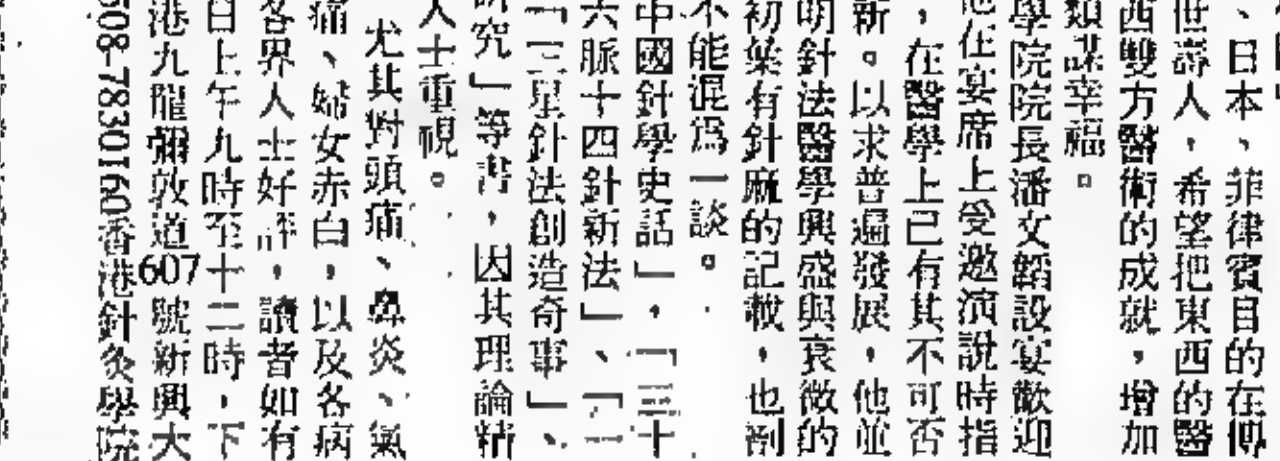 、日本、菲律賓目的在傳
世壽人，希望把東西的醫
西雙方醫術的成就，增加
類謀幸福。
學院院長潘文韜設宴歡迎
他在宴席上受邀演說時指
，在醫學上已有其不可否
新。以求普遍發展，他並
明針法醫學興盛與衰微的
初葉有針麻的記載，也剖
不能混爲一談。
中國針學史話」，「三十
六脈十四針新法」、「
「三星針法創造奇事」、
研究」等書，因其理論精
人士重視。
尤其對頭痛、鼻炎、氣
痛、婦女赤白，以及各病
各界人士好評，讀者如有
日上午九時至十二時，下
港九龍彌敦道607號新興大
508-7830160香港針灸學院